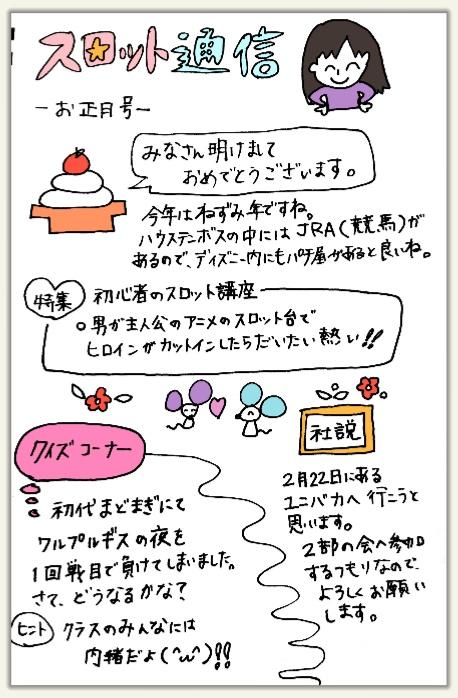 スロット通信
-お正月号-
みなさん明けまして
おめでとうございます。
今年はねずみ年ですね。
ハウステンボスの中にはJRA(競馬)が
あるので、ディズニー内にもパチ屋があると良いね。
特集
初心者のスロット講座
○男が主人公のアニメのスロット台で
ヒロインがカットインしたらだいたい熱い!!
クイズコーナー
初代まどまぎにて
ワルプルギスの夜を
1回戦目で負けてしまいました。
さて、どうなるかな?
ヒント
クラスのみんなには
内緒だよ(^ω^)!!
社説
2月22日にある
ユニバカへ行こうと
思います。
2部の会へ参加
するつもりなので、
よろしくお願い
します。